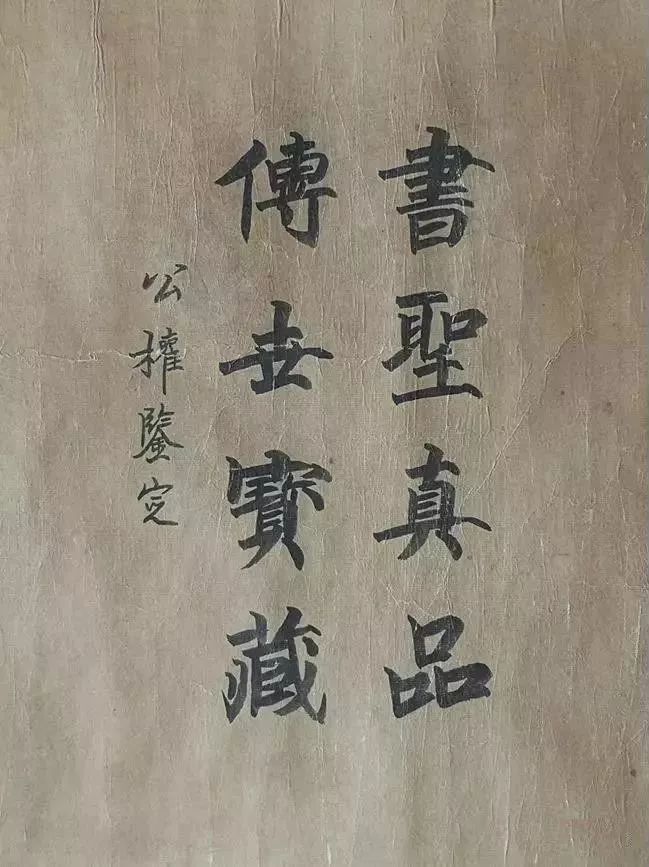 書聖真品
傳世寶藏
公權鑒定